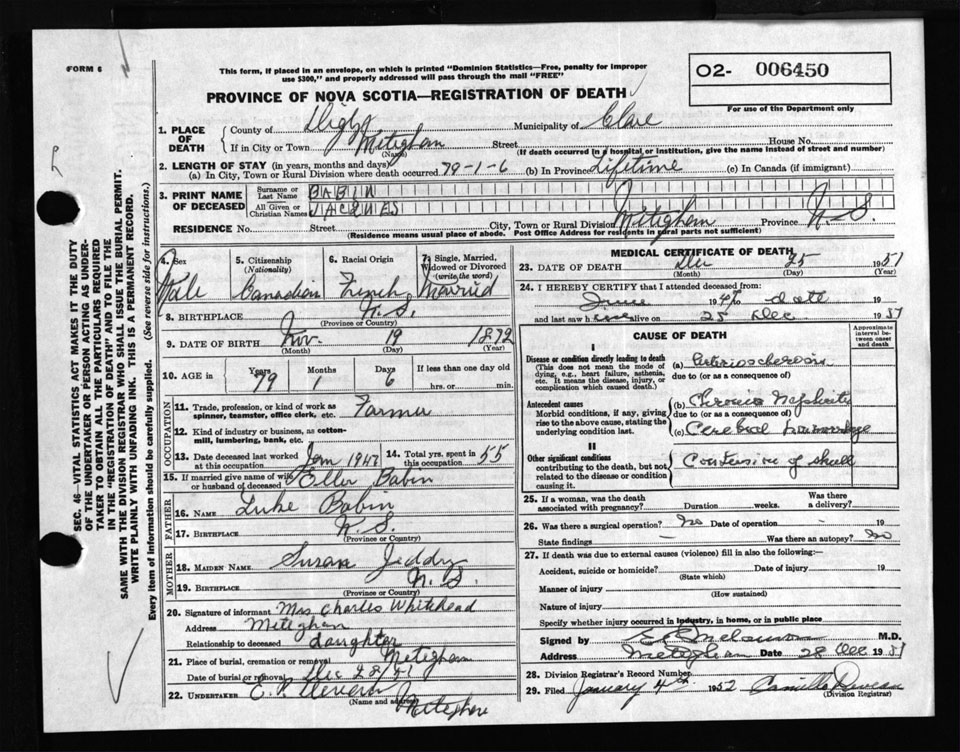 FORM 6
This form, if placed in an envelope, on which is printed "Dominion Statistics—Free, penalty for improper
use $300," and properly addressed will pass through the mail "FREE"
O2- 006450
For use of the Department only
PROVINCE OF NOVA SCOTIA—REGISTRATION OF DEATH
1. PLACE OF DEATH
County of Digby Municipality of Clare
If in City or Town Meteghan Street House No.
(Name) (If death occurred in a hospital or institution, give the name instead of street and number)
2. LENGTH OF STAY (in years, months and days)
(a) In City, Town or Rural Division where death occurred 79-1-6 (b) In Province Lifetime (c) In Canada (if immigrant)
3. PRINT NAME OF DECEASED
Surname or Last Name BABIN
All Given or Christian Names JACQUES
RESIDENCE No. Street City, Town or Rural Division Meteghan Province N.S.
(Residence means usual place of abode. Post Office Address for residents in rural parts not sufficient)
4. Sex
Male
5. Citizenship (Nationality)
Canadian
6. Racial Origin
French
7. Single, Married, Widowed or Divorced (write the word)
Married
8. BIRTHPLACE N.S.
(Province or Country)
9. DATE OF BIRTH Nov. 19 1872
(Month) (Day) (Year)
10. AGE in Years 79 Months 1 Days 6 If less than one day
hrs. or min.
OCCUPATION
11. Trade, profession, or kind of work as spinner, teamster, office clerk, etc. Farmer
12. Kind of industry or business, as cotton-mill, lumbering, bank, etc.
13. Date deceased last worked at this occupation Jan 1947
14. Total yrs. spent in this occupation 55
15. If married give name of wife or husband of deceased Babin
FATHER
16. NAME Luke Babin
17. BIRTHPLACE N.S.
(Province or Country)
MOTHER
18. MAIDEN NAME Susan Jeddry
19. BIRTHPLACE N.S.
(Province or Country)
20. Signature of informant Mrs Charles Whitehead
Address Meteghan
Relationship to deceased daughter
21. Place of burial, cremation or removal Meteghan
Date of burial or removal Dec 28/51
22. UNDERTAKER
(Name and address) Meteghan
MEDICAL CERTIFICATE OF DEATH
23. DATE OF DEATH Dec 25 1951
(Month) (Day) (Year)
24. I HEREBY CERTIFY that I attended deceased from:
June 1947 to date 19
and last saw h alive on 25 Dec. 1951
CAUSE OF DEATH
Approximate interval between onset and death
I
Disease or condition directly leading to death
(This does not mean the mode of dying, e.g., heart failure, asthenia, etc. It means the disease, injury, or complication which caused death.)
(a) Arteriosclerosis
due to (or as a consequence of)
Antecedent causes
Morbid conditions, if any, giving rise to the above cause, stating the underlying condition last.
(b) Chronic Nephritis
due to (or as a consequence of)
(c) Cerebral hemorrhage
II
Other significant conditions
contributing to the death, but not related to the disease or condition causing it.
Contusion of skull
25. If a woman, was the death associated with pregnancy? Duration weeks. Was there a delivery?
26. Was there a surgical operation? No Date of operation - 19
State findings — Was there an autopsy? No
27. If death was due to external causes (violence) fill in also the following:—
Accident, suicide or homicide? Date of injury 19
(State which)
Manner of injury
(How sustained)
Nature of injury
Specify whether injury occurred in industry, in home, or in public place
Signed by M.D.
Address Meteghan Date 28 Dec 1951
28. Division Registrar's Record Number
29. Filed January 4th 1952 Camille
(Division Registrar)
SEC. 46—VITAL STATISTICS ACT MAKES IT THE DUTY
OF THE UNDERTAKER OR PERSON ACTING AS UNDER-
TAKER TO OBTAIN ALL THE PARTICULARS REQUIRED
IN THE "REGISTRATION OF DEATH" AND TO FILE THE
SAME WITH THE DIVISION REGISTRAR WHO SHALL ISSUE THE BURIAL PERMIT.
WRITE PLAINLY WITH UNFADING INK. THIS IS A PERMANENT RECORD.
Every item of information should be carefully supplied. (See reverse side for instructions.)